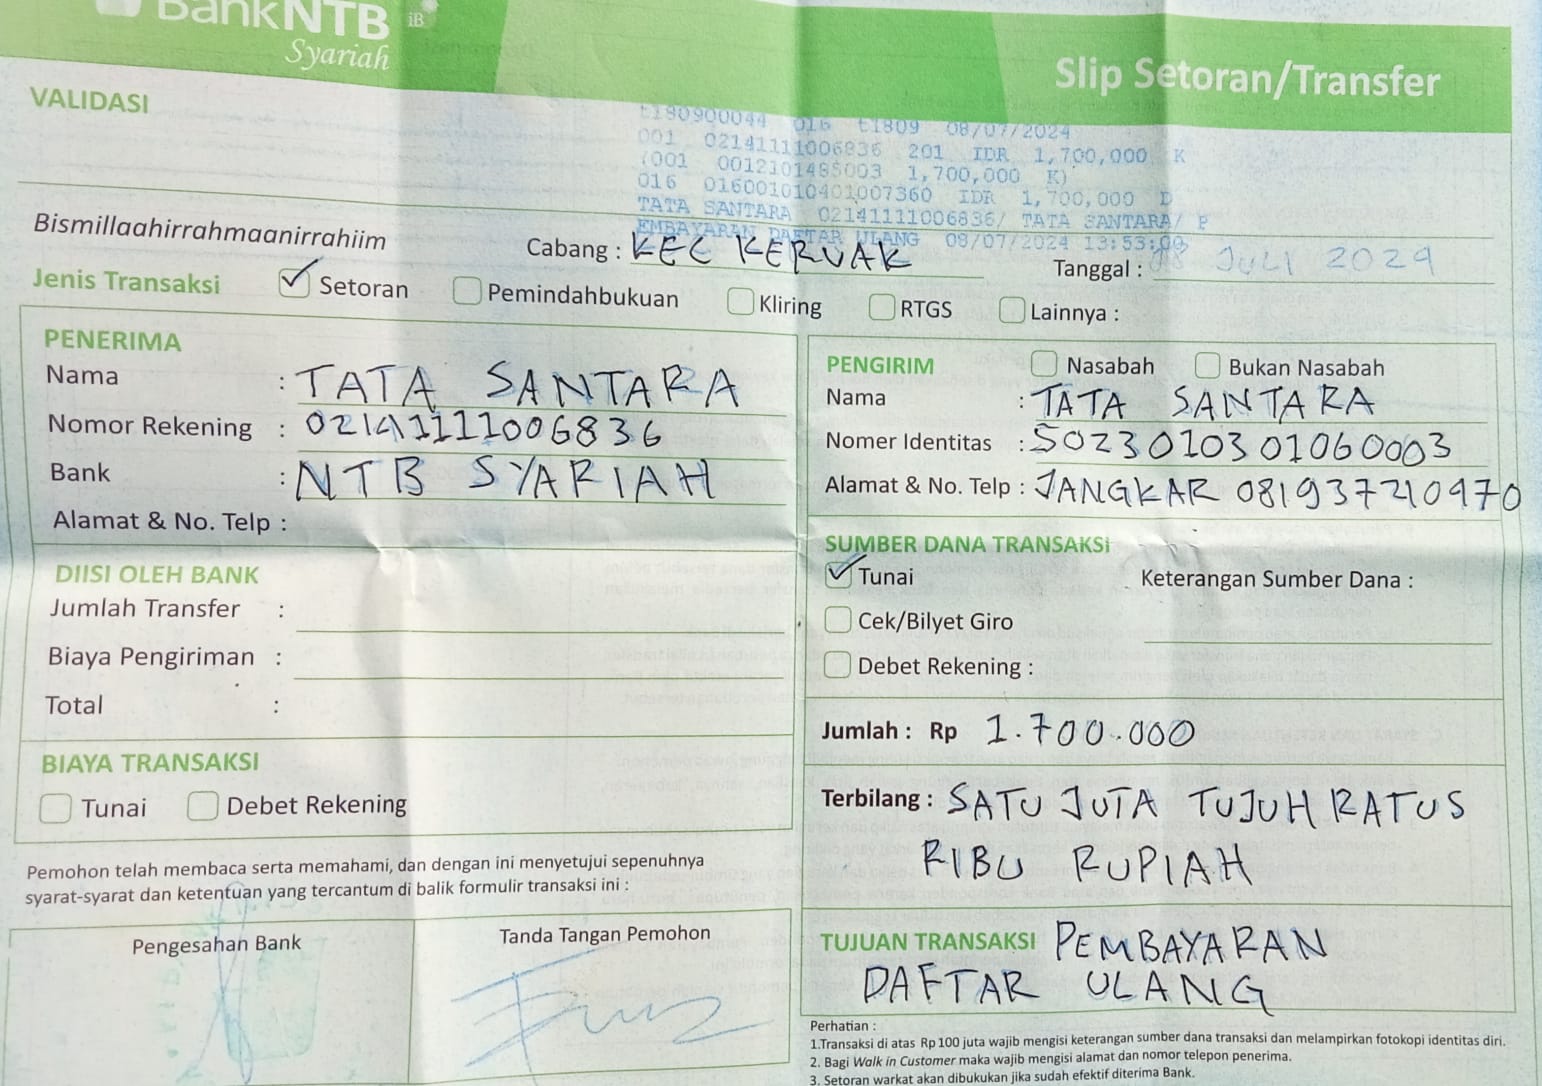 BankNTB iB
Syariah
Slip Setoran/Transfer
VALIDASI
E180900044 016 E1809 08/07/2024
001 02141111006836 201 IDR 1,700,000 K
(001 0012101485003 1,700,000 K)
016 016001010401007360 IDR 1,700,000 D
TATA SANTARA 02141111006836/ TATA SANTARA/ P
EMBAYARAN DAFTAR ULANG 08/07/2024 13:53:00
Bismillaahirrahmaanirrahiim
Cabang : KEC KERUAK
Tanggal : 08 JULI 2024
Jenis Transaksi Setoran Pemindahbukuan Kliring RTGS Lainnya :
PENERIMA
Nama : TATA SANTARA
Nomor Rekening : 02141111006836
Bank : NTB SYARIAH
Alamat & No. Telp :
PENGIRIM Nasabah Bukan Nasabah
Nama : TATA SANTARA
Nomer Identitas : 5023010301060003
Alamat & No. Telp : JANGKAR 081937210970
DIISI OLEH BANK
Jumlah Transfer :
Biaya Pengiriman :
Total :
SUMBER DANA TRANSAKSI
Tunai Keterangan Sumber Dana :
Cek/Bilyet Giro
Debet Rekening :
BIAYA TRANSAKSI
Tunai Debet Rekening
Jumlah : Rp 1.700.000
Terbilang : SATU JUTA TUJUH RATUS
RIBU RUPIAH
Pemohon telah membaca serta memahami, dan dengan ini menyetujui sepenuhnya
syarat-syarat dan ketentuan yang tercantum di balik formulir transaksi ini :
Pengesahan Bank Tanda Tangan Pemohon
TUJUAN TRANSAKSI PEMBAYARAN
DAFTAR ULANG
Perhatian :
1.Transaksi di atas Rp100 juta wajib mengisi keterangan sumber dana transaksi dan melampirkan fotokopi identitas diri.
2. Bagi Walk in Customer maka wajib mengisi alamat dan nomor telepon penerima.
3. Setoran warkat akan dibukukan jika sudah efektif diterima Bank.